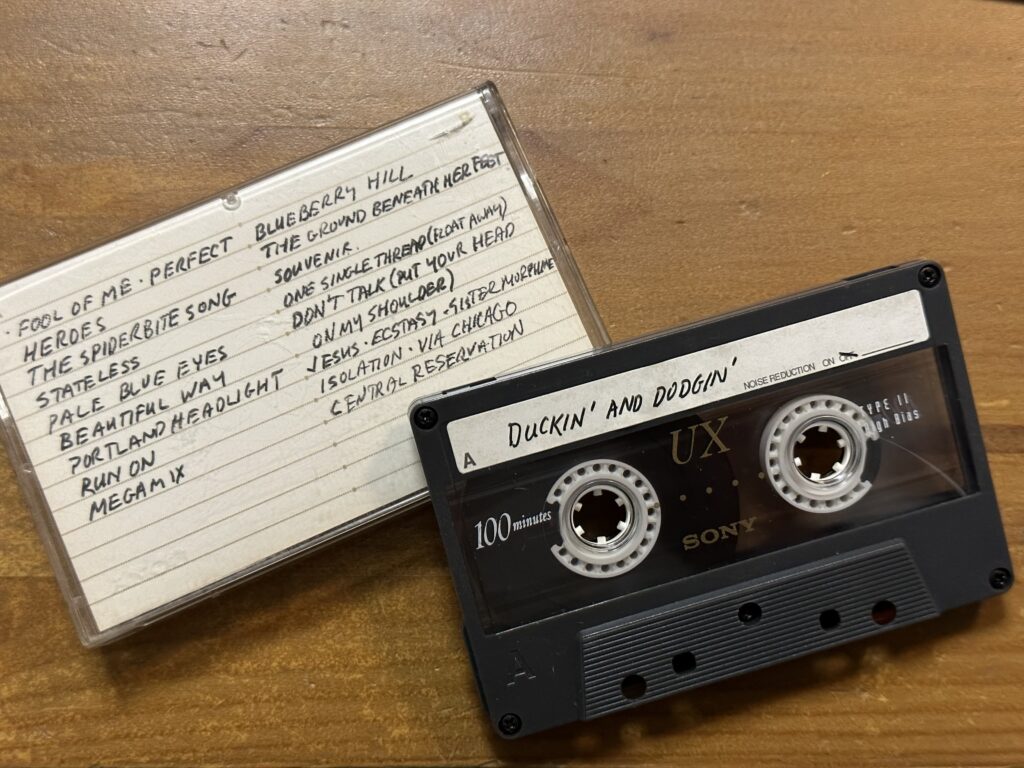 · FOOL OF ME · PERFECT
HEROES
THE SPIDERBITE SONG
STATELESS
PALE BLUE EYES
BEAUTIFUL WAY
PORTLAND HEADLIGHT
RUN ON
MEGAMIX
BLUEBERRY HILL
THE GROUND BENEATH HER FEET
SOUVENIR
ONE SINGLE THREAD (FLOAT AWAY)
DON'T TALK (PUT YOUR HEAD
ON MY SHOULDER)
JESUS · ECSTASY · SISTER MORPHINE
ISOLATION · VIA CHICAGO
CENTRAL RESERVATION
DUCKIN' AND DODGIN'
A
NOISE REDUCTION ON OFF
UX
TYPE II
High Bias
100 minutes
SONY
A